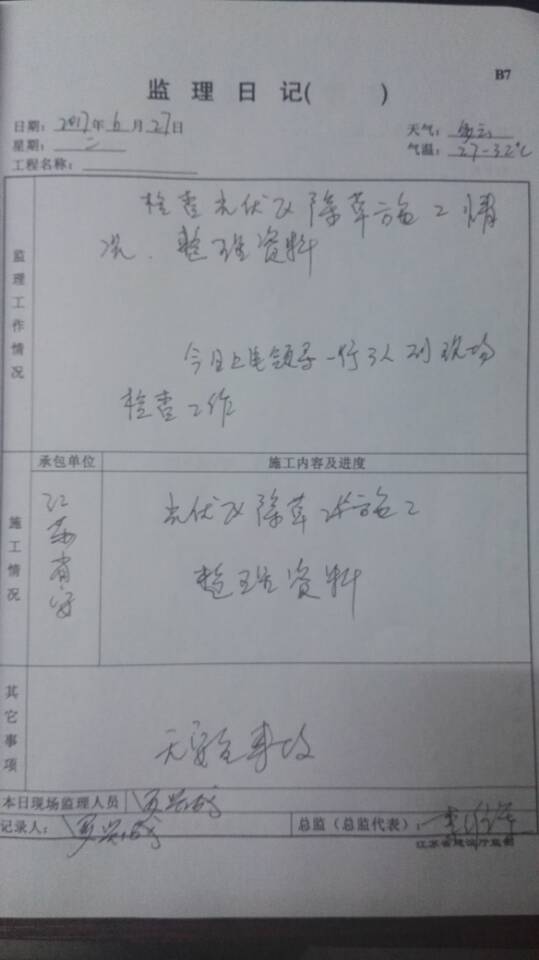 B7
监理日记( )
日期: 2017年6月27日
天气: 多云
星期: 二
气温: 27-32℃
工程名称:
监理工作情况
检查光伏区除草施工情
况、整理资料
今日上电领导一行3人到现场
检查工作
承包单位
施工内容及进度
施工情况
江苏
光伏区除草 施工
整理资料
其它事项
无安全事故
本日现场监理人员
记录人:
总监(总监代表):
江苏省建设厅监制